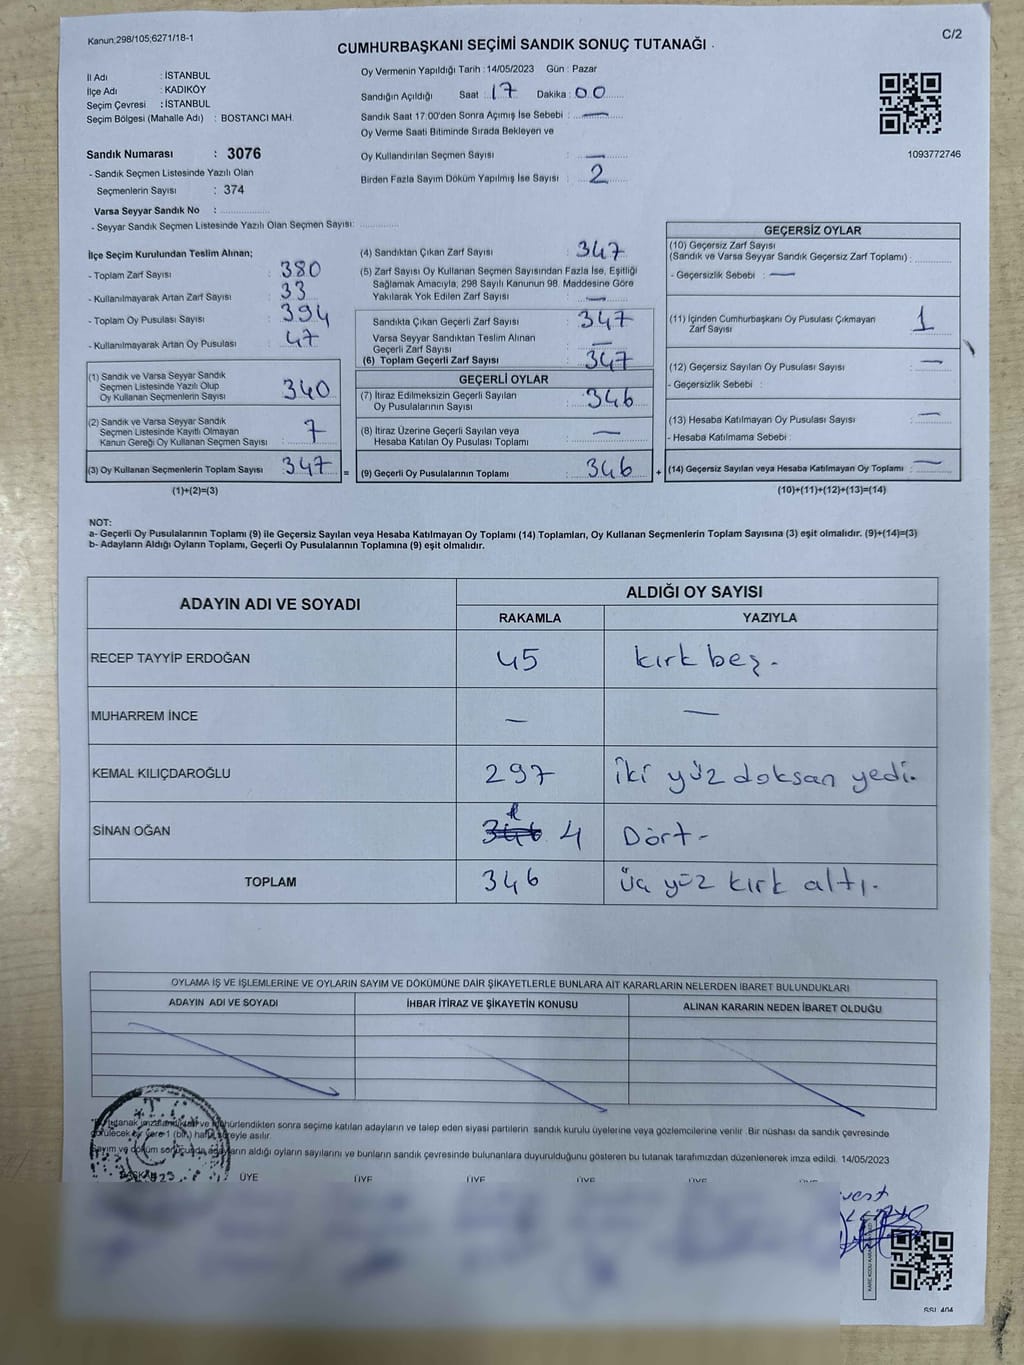 Kanun;298/105;6271/18-1
C/2
CUMHURBAŞKANI SEÇİMİ SANDIK SONUÇ TUTANAĞI
İl Adı : İSTANBUL
İlçe Adı : KADIKÖY
Seçim Çevresi : İSTANBUL
Seçim Bölgesi (Mahalle Adı) : BOSTANCI MAH.
Sandık Numarası : 3076
- Sandık Seçmen Listesinde Yazılı Olan
Seçmenlerin Sayısı : 374
Varsa Seyyar Sandık No :
- Seyyar Sandık Seçmen Listesinde Yazılı Olan Seçmen Sayısı:
Oy Vermenin Yapıldığı Tarih : 14/05/2023 Gün : Pazar
Sandığın Açıldığı Saat : 17 Dakika : 00
Sandık Saat 17.00'den Sonra Açımış İse Sebebi : —
Oy Verme Saati Bitiminde Sırada Bekleyen ve
Oy Kullandırılan Seçmen Sayısı : —
Birden Fazla Sayım Döküm Yapılmış İse Sayısı : 2
1093772746
İlçe Seçim Kurulundan Teslim Alınan;
- Toplam Zarf Sayısı : 380
- Kullanılmayarak Artan Zarf Sayısı : 33
- Toplam Oy Pusulası Sayısı : 394
- Kullanılmayarak Artan Oy Pusulası : 47
(1) Sandık ve Varsa Seyyar Sandık
Seçmen Listesinde Yazılı Olup
Oy Kullanan Seçmenlerin Sayısı : 340
(2) Sandık ve Varsa Seyyar Sandık
Seçmen Listesinde Kayıtlı Olmayan
Kanun Gereği Oy Kullanan Seçmen Sayısı : 7
(3) Oy Kullanan Seçmenlerin Toplam Sayısı : 347 =
(1)+(2)=(3)
(4) Sandıktan Çıkan Zarf Sayısı : 347
(5) Zarf Sayısı Oy Kullanan Seçmen Sayısından Fazla İse, Eşitliği
Sağlamak Amacıyla; 298 Sayılı Kanunun 98. Maddesine Göre
Yakılarak Yok Edilen Zarf Sayısı : —
Sandıkta Çıkan Geçerli Zarf Sayısı : 347
Varsa Seyyar Sandıktan Teslim Alınan
Geçerli Zarf Sayısı : —
(6) Toplam Geçerli Zarf Sayısı : 347
GEÇERLİ OYLAR
(7) İtiraz Edilmeksizin Geçerli Sayılan
Oy Pusulalarının Sayısı : 346
(8) İtiraz Üzerine Geçerli Sayılan veya
Hesaba Katılan Oy Pusulası Toplamı : —
(9) Geçerli Oy Pusulalarının Toplamı : 346 +
GEÇERSİZ OYLAR
(10) Geçersiz Zarf Sayısı
(Sandık ve Varsa Seyyar Sandık Geçersiz Zarf Toplamı) :
- Geçersizlik Sebebi : —
(11) İçinden Cumhurbaşkanı Oy Pusulası Çıkmayan
Zarf Sayısı : 1
(12) Geçersiz Sayılan Oy Pusulası Sayısı : —
- Geçersizlik Sebebi :
(13) Hesaba Katılmayan Oy Pusulası Sayısı : —
- Hesaba Katılmama Sebebi :
(14) Geçersiz Sayılan veya Hesaba Katılmayan Oy Toplamı : —
(10)+(11)+(12)+(13)=(14)
NOT:
a- Geçerli Oy Pusulalarının Toplamı (9) ile Geçersiz Sayılan veya Hesaba Katılmayan Oy Toplamı (14) Toplamları, Oy Kullanan Seçmenlerin Toplam Sayısına (3) eşit olmalıdır. (9)+(14)=(3)
b- Adayların Aldığı Oyların Toplamı, Geçerli Oy Pusulalarının Toplamına (9) eşit olmalıdır.
ADAYIN ADI VE SOYADI
ALDIĞI OY SAYISI
RAKAMLA YAZIYLA
RECEP TAYYİP ERDOĞAN 45 kırk beş.
MUHARREM İNCE — —
KEMAL KILIÇDAROĞLU 297 iki yüz doksan yedi.
SİNAN OĞAN 346 4 Dört-
TOPLAM 346 üç yüz kırk altı.
OYLAMA İŞ VE İŞLEMLERİNE VE OYLARIN SAYIM VE DÖKÜMÜNE DAİR ŞİKAYETLERLE BUNLARA AİT KARARLARIN NELERDEN İBARET BULUNDUKLARI
ADAYIN ADI VE SOYADI İHBAR İTİRAZ VE ŞİKAYETİN KONUSU ALINAN KARARIN NEDEN İBARET OLDUĞU
tutanak ve mühürlendikten sonra seçime katılan adayların ve talep eden siyasi partilerin sandık kurulu üyelerine veya gözlemcilerine verilir. Bir nüshası da sandık çevresinde
görülecek bir yere 1 (bir) hafta süreyle asılır.
Sayım ve döküm sonucunda adayların aldığı oyların sayılarını ve bunların sandık çevresinde bulunanlara duyurulduğunu gösteren bu tutanak tarafımızdan düzenlenerek imza edildi. 14/05/2023
ÜYE ÜYE ÜYE ÜYE ÜYE ÜYE